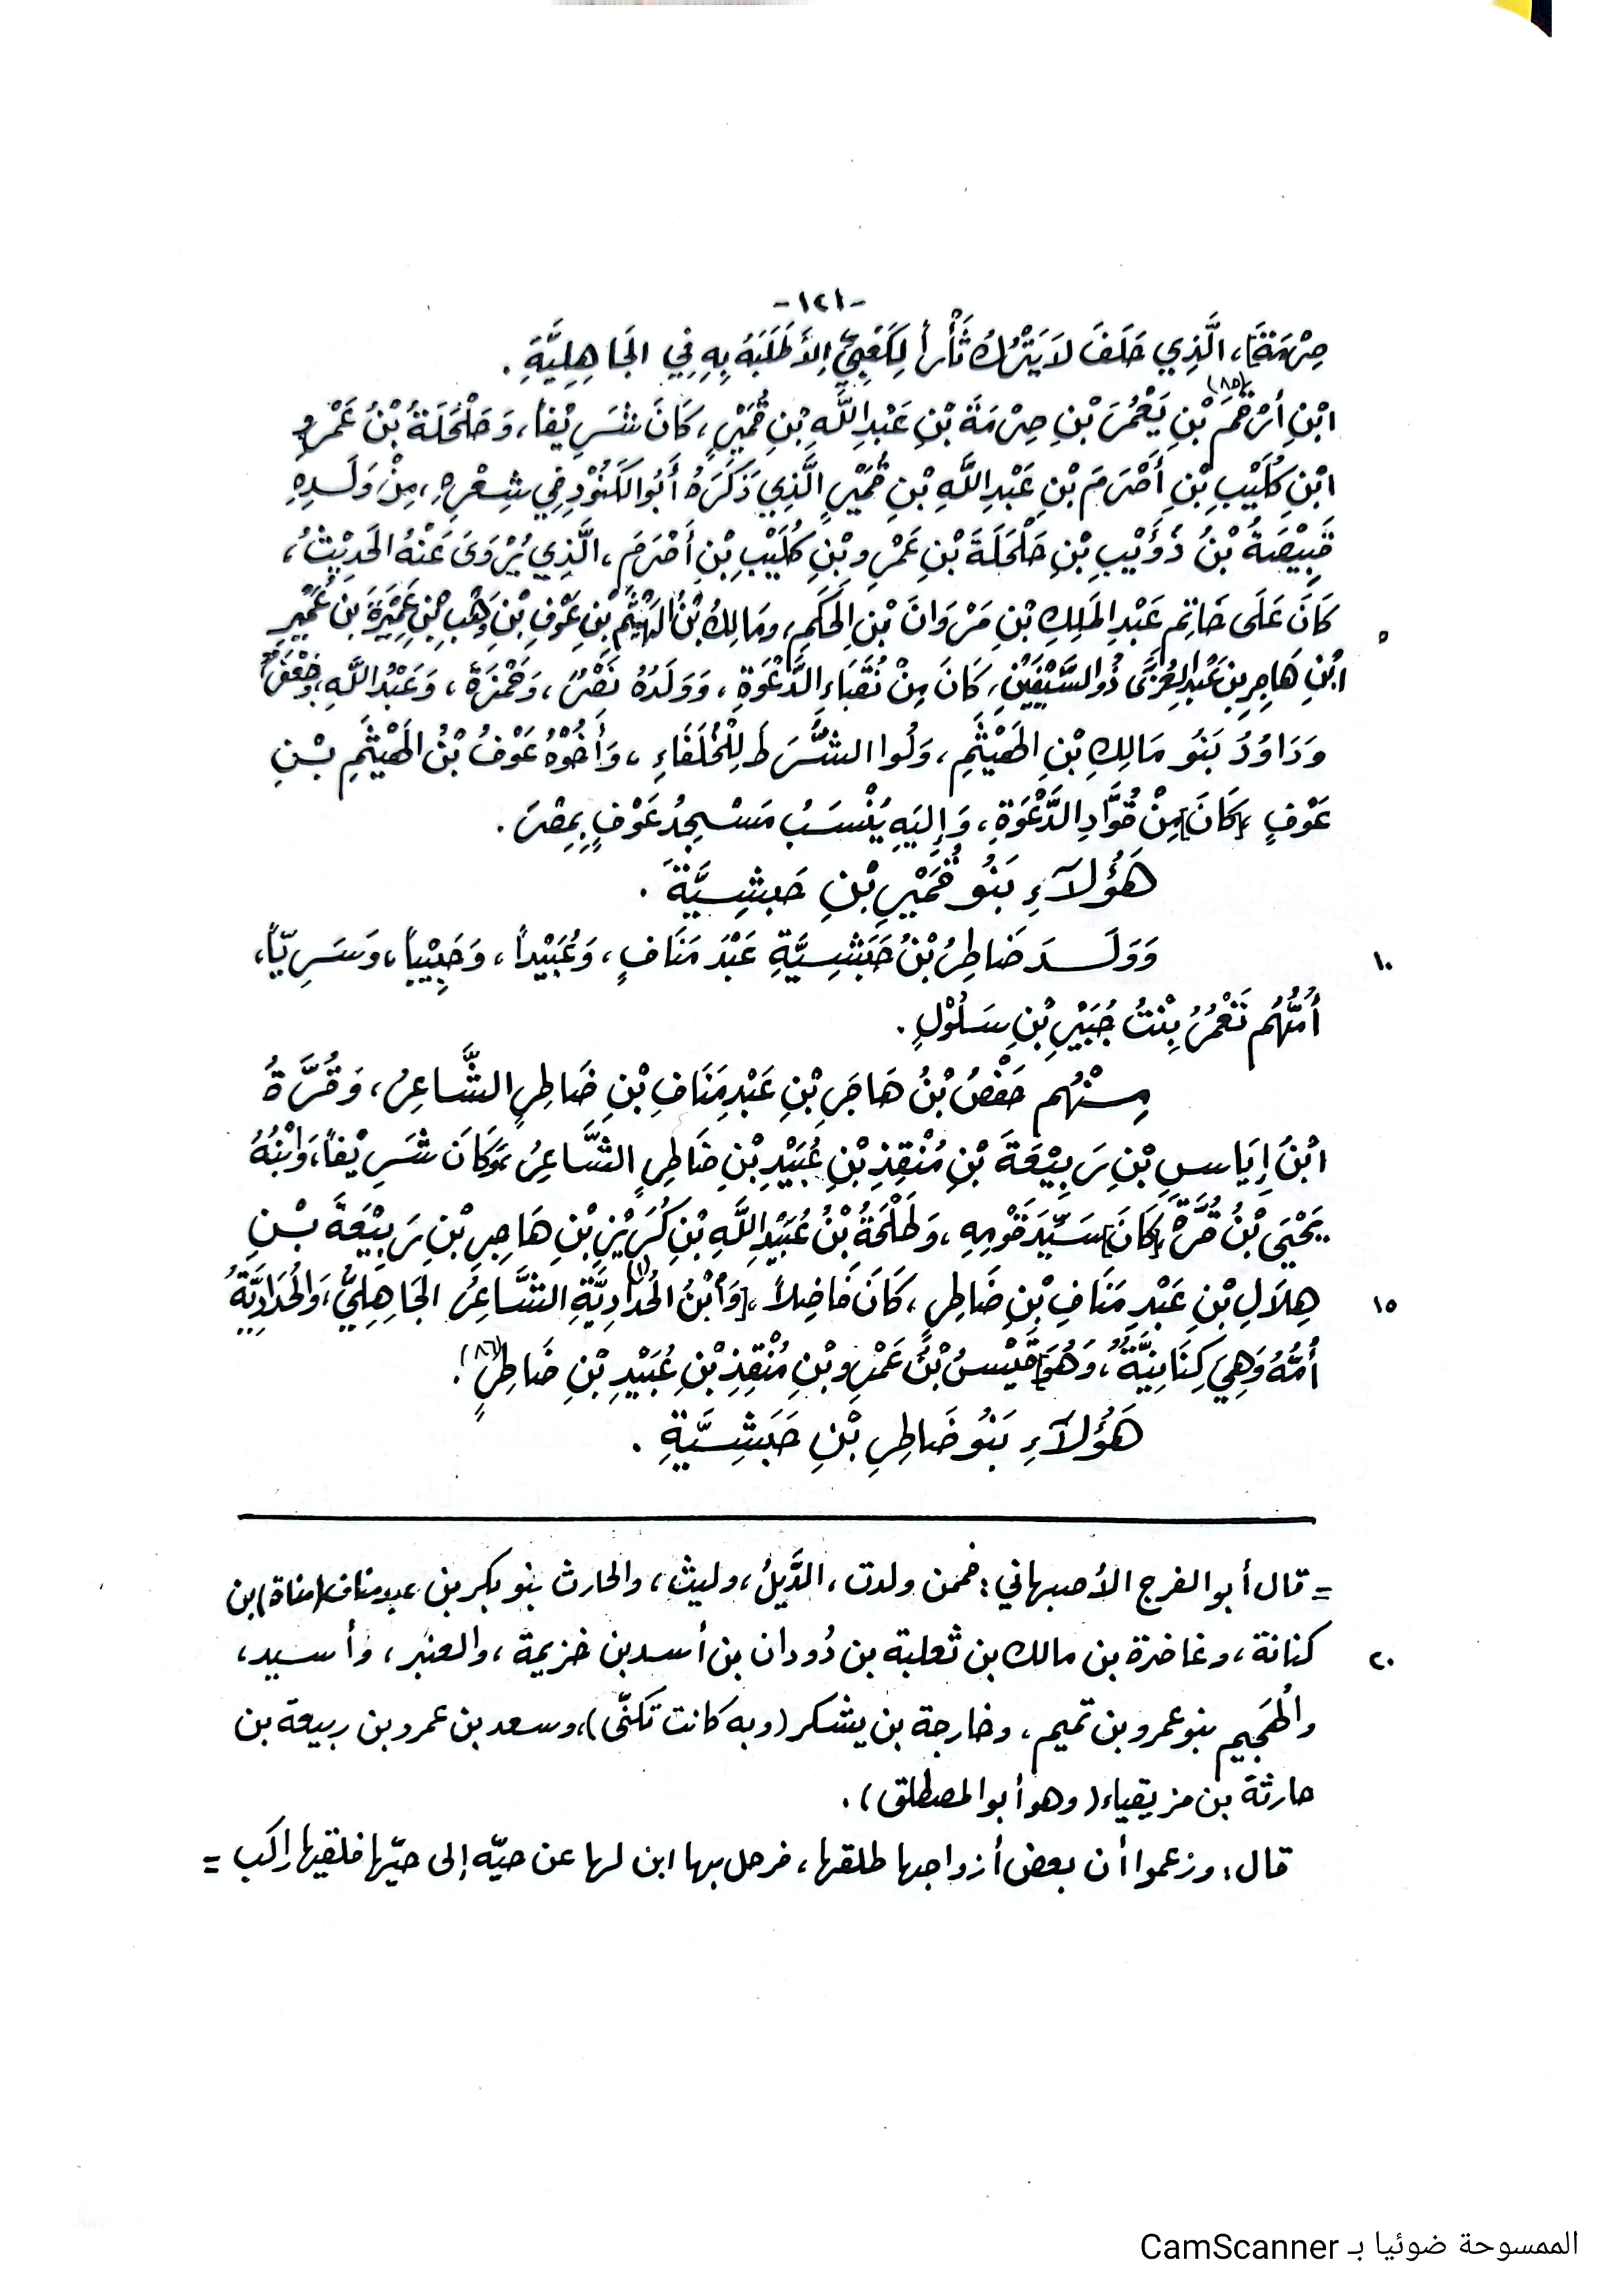 -١٢١-
صِرْمَةَ]، الَّذِي حَلَفَ لَا يَتْرُكُ ثَأْراً لِكَعْبِيٍّ إِلَّا طَلَبَهُ بِهِ فِي الجَاهِلِيَّةِ .
ابْنِ أَرْحَمَ (٨٥) بْنِ يَعْمُرَ بْنِ صِرْمَةَ بْنِ عَبْدِ اللَّهِ بْنِ قُمَيْرٍ، كَانَ شَرِيْفاً، وَحَلْحَلَةُ بْنُ عَمْرِو
ابْنِ كُلَيْبِ بْنِ أَصْرَمَ بْنِ عَبْدِ اللَّهِ بْنِ قُمَيْرٍ الَّذِي ذَكَرَهُ أَبُو الكَنُوْدِ فِي شِعْرِهِ، مِنْ وَلَدِهِ
قَبِيْصَةُ بْنُ ذُؤَيْبِ بْنِ حَلْحَلَةَ بْنِ عَمْرِو بْنِ كُلَيْبِ بْنِ أَصْرَمَ، الَّذِي يُرْوَى عَنْهُ الحَدِيْثُ،
كَانَ عَلَى خَاتِمِ عَبْدِ المَلِكِ بْنِ مَرْوَانَ بْنِ الحَكَمِ، وَمَالِكُ بْنُ الهَيْثَمِ بْنِ عَوْفِ بْنِ وَهْبِ بْنِ عَمِيْرَةَ بْنِ عُمَيْرِ
٥
ابْنِ هَاجِرِ بْنِ عَبْدِ العُزَّى ذُو السَّيْفَيْنِ، كَانَ مِنْ نُقَبَاءِ الدَّعْوَةِ، وَوَلَدُهُ نَصْرٌ، وَحَمْزَةُ، وَعَبْدُ اللَّهِ، وَجَعْفَرٌ
وَدَاوُدُ بَنُو مَالِكِ بْنِ الهَيْثَمِ، وَلُوا الشُّرَطَ لِلْخُلَفَاءِ، وَأَخُوْهُ عَوْفُ بْنُ الهَيْثَمِ بْنِ
عَوْفٍ [كَانَ] مِنْ قُوَّادِ الدَّعْوَةِ، وَإِلَيْهِ يُنْسَبُ مَسْجِدُ عَوْفٍ بِمِصْرَ .
هَؤُلَآءِ بَنُو قُمَيْرِ بْنِ حَبَشِيَّةَ .
وَوَلَدَ ضَاطِرُ بْنُ حَبَشِيَّةَ عَبْدَ مَنَافٍ، وَعُبَيْداً، وَحَبِيْباً، وَسَرِيّاً،
١٠
أُمُّهُم نَعْمُرُ بِنْتُ جُبَيْرِ بْنِ سَلُوْلٍ .
مِنْهُم حَفْصُ بْنُ هَاجَرِ بْنِ عَبْدِ مَنَافِ بْنِ ضَاطِرٍ الشَّاعِرُ، وَقُرَّةُ
ابْنُ إِيَاسِ بْنِ رَبِيْعَةَ بْنِ مُنْقِذِ بْنِ عُبَيْدِ بْنِ ضَاطِرٍ الشَّاعِرُ، وَكَانَ شَرِيْفاً، وَابْنُهُ
يَحْيَى بْنُ قُرَّةَ [كَانَ] سَيِّدَ قَوْمِهِ، وَطَلْحَةُ بْنُ عُبَيْدِ اللَّهِ بْنِ كُرَيْزِ بْنِ هَاجِرِ بْنِ رَبِيْعَةَ بْنِ
هِلَالِ بْنِ عَبْدِ مَنَافِ بْنِ ضَاطِرٍ، كَانَ فَاضِلاً، [وَابْنُ الحُدَادِيَّةِ (١) الشَّاعِرُ الجَاهِلِيُّ، وَالحُدَادِيَّةُ
١٥
أُمُّهُ وَهِيَ كِنَانِيَّةٌ، وَهُوَ] قَيْسُ بْنُ عَمْرِو بْنِ مُنْقِذِ بْنِ عُبَيْدِ بْنِ ضَاطِرٍ (٨٦) .
هَؤُلَآءِ بَنُو ضَاطِرِ بْنِ حَبَشِيَّةِ .
= قال أبو الفرج الأصبهاني: فممن ولدت، الدَّيلُ، وليث، والحارث بنو بكر بن عبدمناف (مناة) بن
كنانة، وغاضرة بن مالك بن ثعلبة بن دُودان بن أسد بن خزيمة، والعنبر، وأسيد،
٢٠
والهُجيم بنو عمرو بن تميم، وخارجة بن يشكر (وبه كانت تكنّى)، وسعد بن عمرو بن ربيعة بن
حارثة بن مزيقياء (وهو أبو المصطلق) .
قال: وزعموا أن بعض أزواجها طلقها، فرحل بها ابن لها عن حيّه إلى حيّها فلقيها راكب =
الممسوحة ضوئيا بـ CamScanner